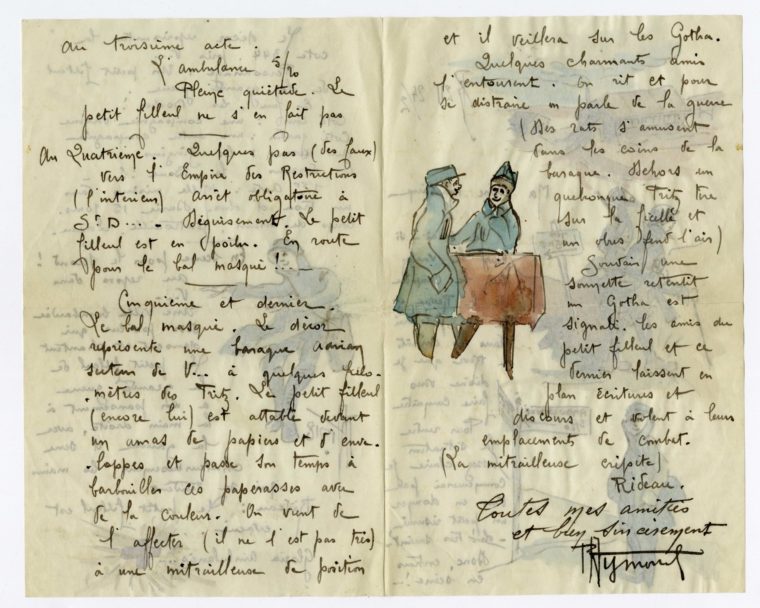 au troisième acte.
L'ambulance 5/20
Pleine quiétude. Le
petit filleul ne s'en fait pas
Au Quatrième. Quelques pas (des faux)
vers l'Empire des Restrictions
(l'intérieur) arrêt obligatoire à
St D.... Déguisement. Le petit
filleul est en poilu. En route
pour le bal masqué !...
Cinquième et dernier
Le bal masqué. Le décor
représente une baraque Adrian
secteur de V... à quelques kilo-
mètres des Fritz. Le petit filleul
(encore lui) est attablé devant
un amas de papiers et d'enve-
-loppes et passe son temps à
barbouiller ces paperasses avec
de la couleur. On vient de
l'affecter (il ne l'est pas très)
à une mitrailleuse de position
et il veillera sur les Gotha.
Quelques charmants amis
l'entourent. On rit et pour
se distraire on parle de la guerre
(Des rats s'amusent
dans les coins de la
baraque. Dehors un
quelconque Fritz tire
sur la ficelle et
un obus fend l'air)
Soudain une
sonnette retentit
un Gotha est
signalé. Les amis du
petit filleul et ce
dernier laissent en
plan écritures et
discours et volent à leurs
emplacements de combat.
(La mitrailleuse crépite)
Rideau.
Toutes mes amitiés
et bien sincèrement
Raymond